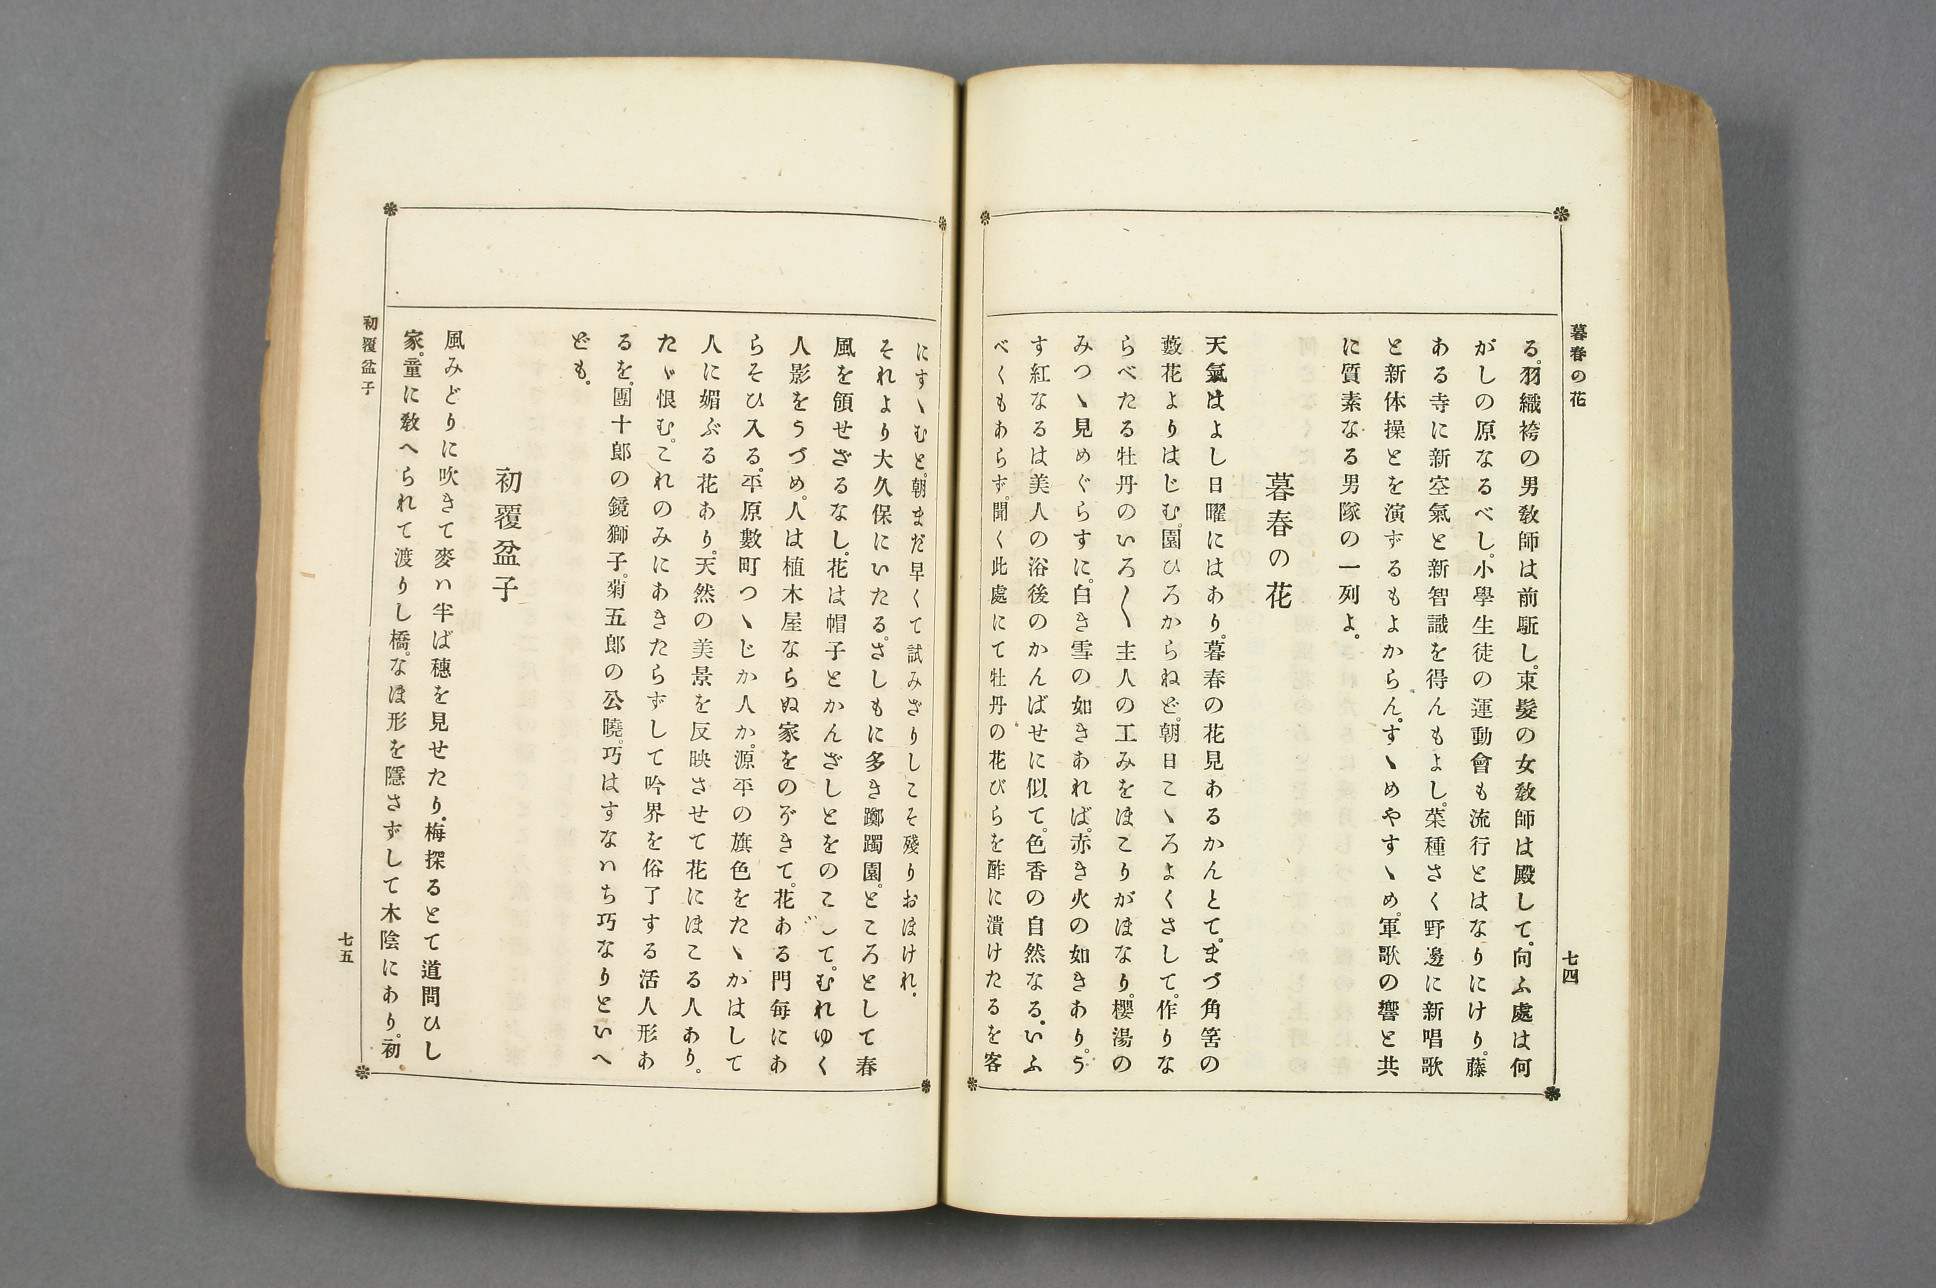 暮春の花
七四
る。羽織袴の男敎師は前駈し。束髮の女敎師は殿して。向ふ處は何
がしの原なるべし。小學生徒の運動會も流行とはなりにけり。藤
ある寺に新空氣と新智識を得んもよし。菜種さく野邊に新唱歌
と新体操とを演ずるもよからん。すゝめやすゝめ。軍歌の響と共
に質素なる男隊の一列よ。
暮春の花
天氣はよし日曜にはあり。暮春の花見あるかんとて。まづ角筈の
藪花よりはじむ。園ひろからねど。朝日こゝろよくさして。作りな
らべたる牡丹のいろ〱主人の工みをほこりがほなり。櫻湯の
みつゝ見めぐらすに。白き雪の如きあれば。赤き火の如きあり。う
す紅なるは美人の浴後のかんばせに似て。色香の自然なる。いふ
べくもあらず。聞く此處にて牡丹の花びらを酢に漬けたるを客
にすゝむと。朝まだ早くて試みざりしこそ殘りおほけれ。
それより大久保にいたる。さしもに多き躑躅園。ところとして春
風を領せざるなし。花は帽子とかんざしとをのこして。むれゆく
人影をうづめ。人は植木屋ならぬ家をのぞきて。花ある門每にあ
らそひ入る。平原數町つゝじか人か。源平の旗色をたゝかはして
人に媚ぶる花あり。天然の美景を反映させて花にほこる人あり。
たゞ恨む。これのみにあきたらずして吟界を俗了する活人形あ
るを。團十郞の鏡獅子。菊五郞の公曉。巧はすなハち巧なりといへ
ども。
初覆盆子
風みどりに吹きて麥ハ半ば穗を見せたり。梅探るとて道問ひし
家。童に敎へられて渡りし橋。なほ形を隱さずして木陰にあり。初
初覆盆子
七五